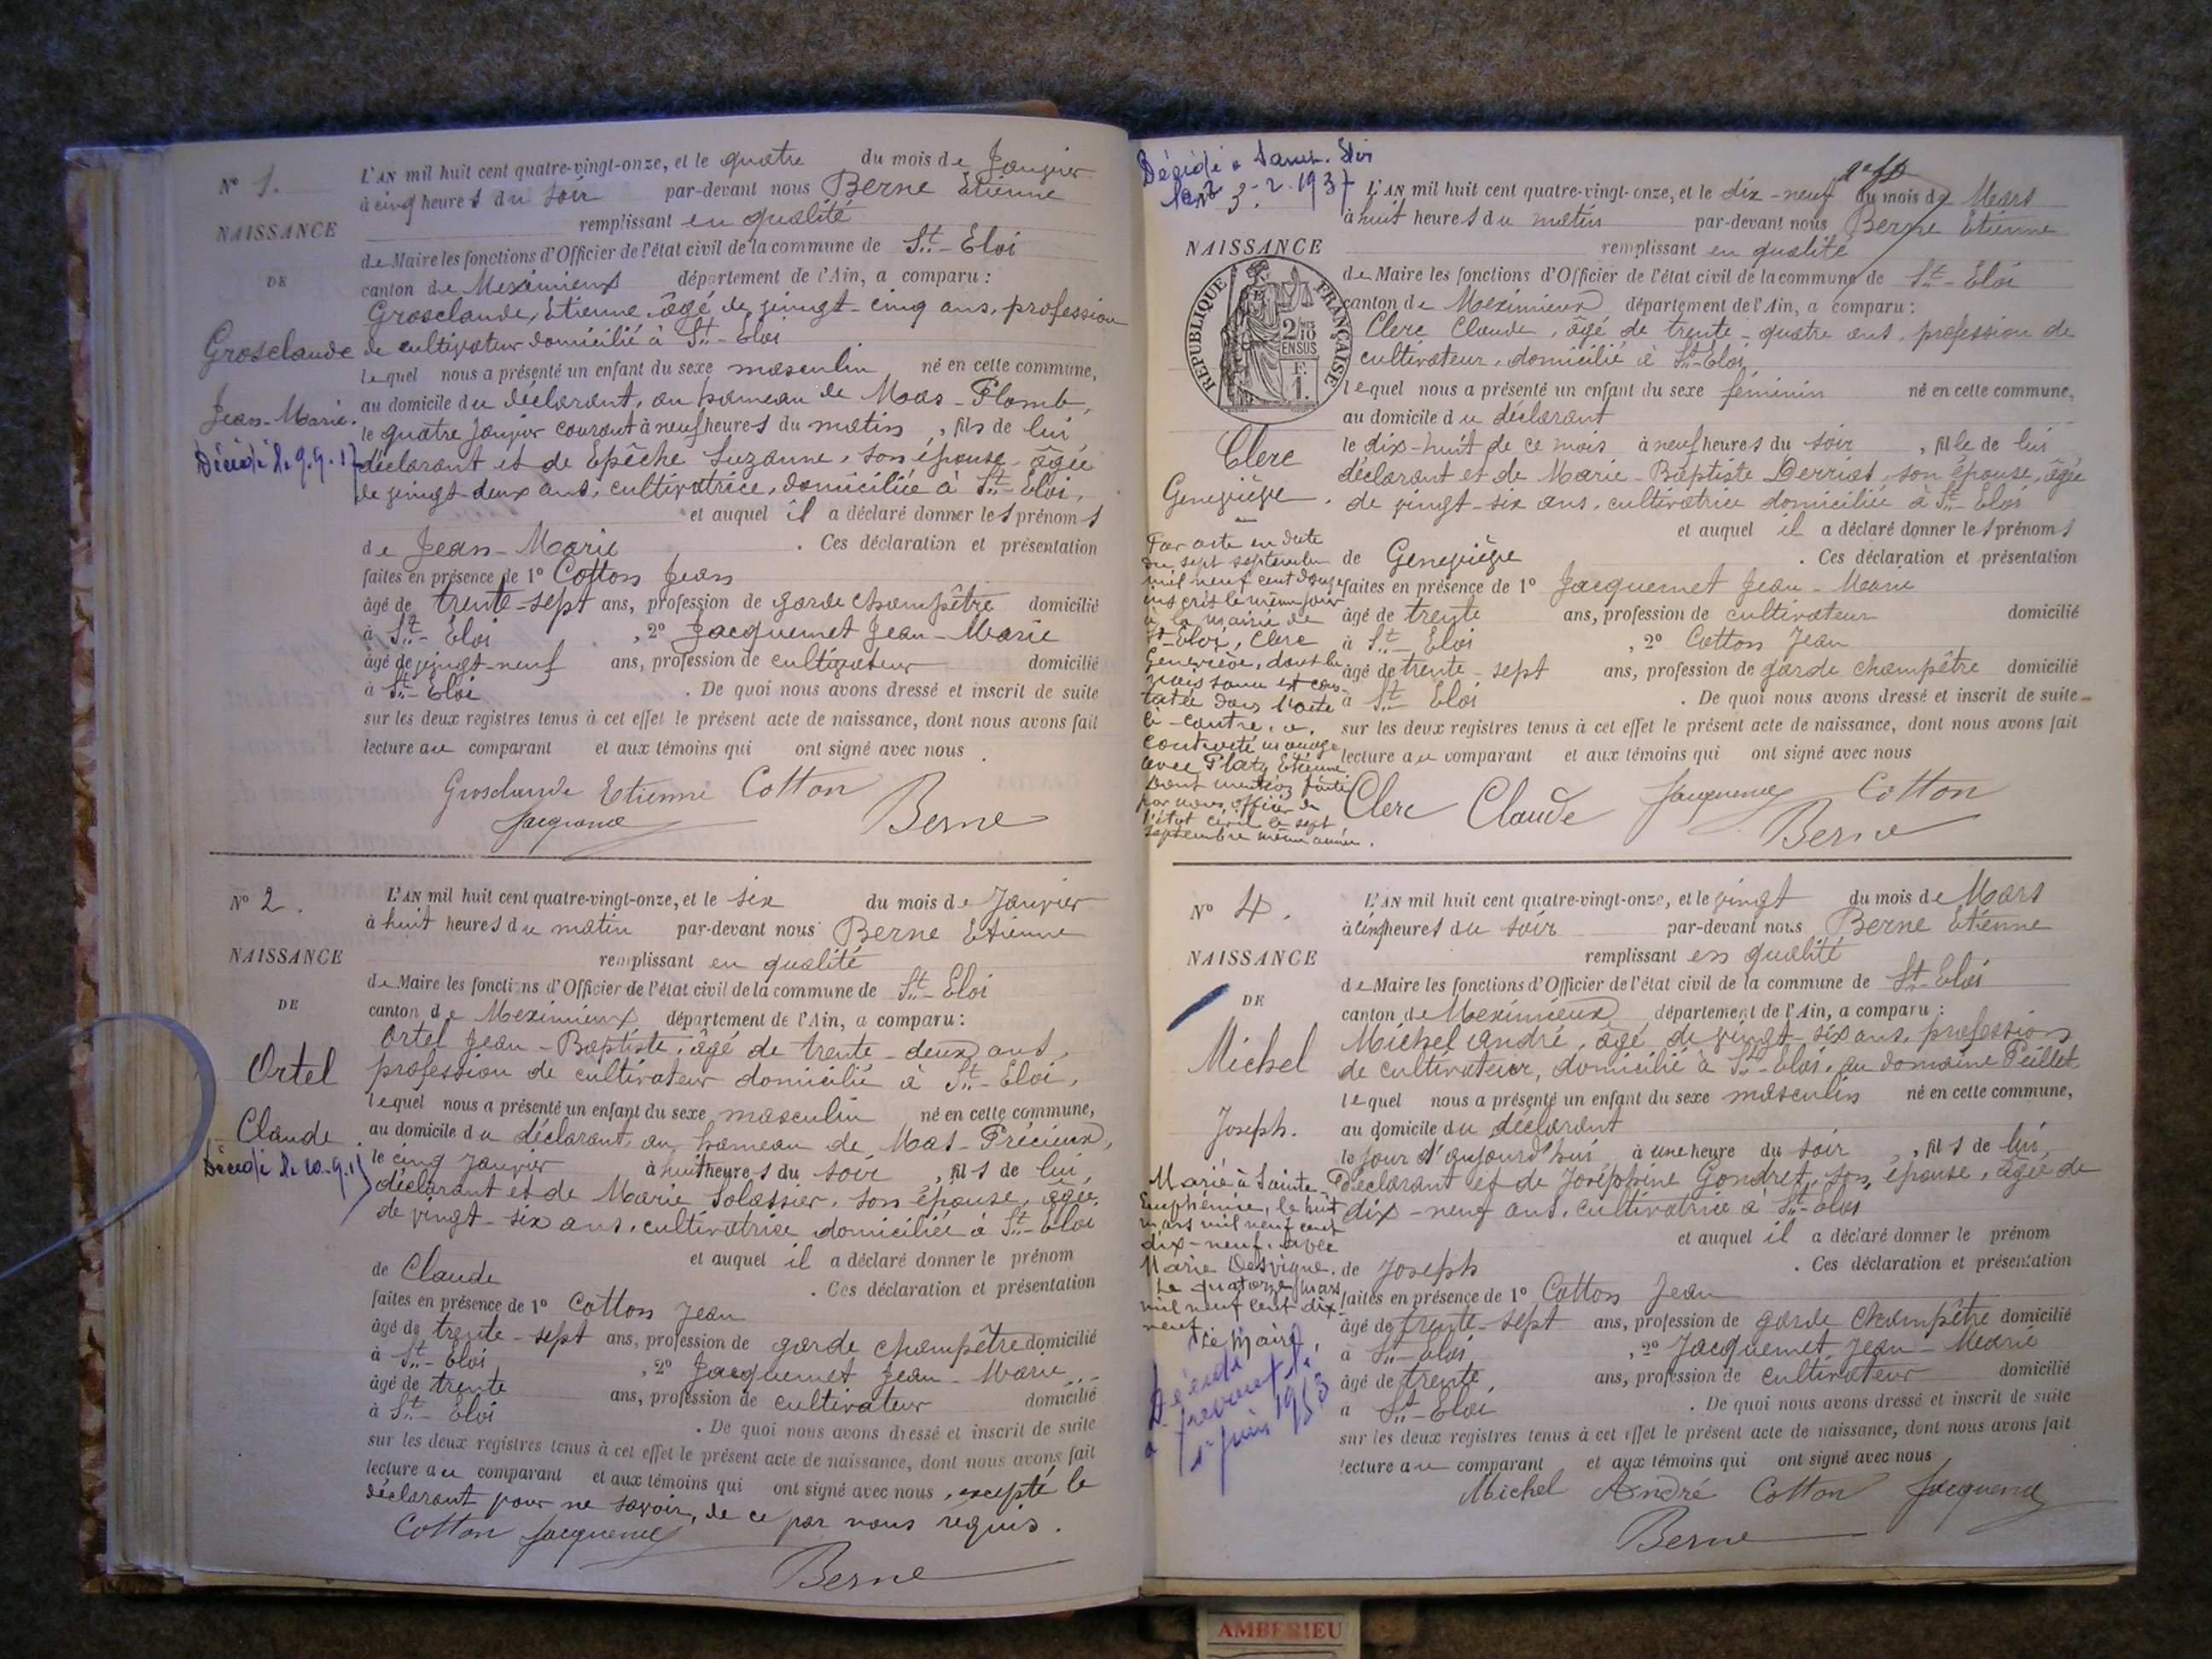 N° 1.
NAISSANCE
DE
Grosclaude
Jean-Marie.
Décédé le 9.9.17
L'AN mil huit cent quatre-vingt-onze, et le quatre du mois de Janvier
à cinq heures du soir par-devant nous Berne Etienne
remplissant en qualité
de Maire les fonctions d'Officier de l'état civil de la commune de St-Eloi
canton de Meximieux département de l'Ain, a comparu :
Grosclaude, Etienne, âgé de vingt-cinq ans, profession
de cultivateur domicilié à St-Eloi
lequel nous a présenté un enfant du sexe masculin né en cette commune,
au domicile du déclarant, au hameau de Mas-Plomb,
le quatre Janvier courant à neuf heures du matin, fils de lui
déclarant et de Epêche Suzanne, son épouse, âgée
de vingt-deux ans, cultivatrice, domiciliée à St-Eloi,
et auquel il a déclaré donner les prénoms
de Jean-Marie . Ces déclaration et présentation
faites en présence de 1° Cotton Jean
âgé de trente-sept ans, profession de garde champêtre domicilié
à St-Eloi , 2° Jacquemet Jean-Marie
âgé de vingt-neuf ans, profession de cultivateur domicilié
à St-Eloi . De quoi nous avons dressé et inscrit de suite
sur les deux registres tenus à cet effet le présent acte de naissance, dont nous avons fait
lecture au comparant et aux témoins qui ont signé avec nous .
Grosclaude Etienne Cotton
Jacquemet Berne
N° 2.
NAISSANCE
DE
Ortel
Claude.
Décédé le 10.9.1
L'AN mil huit cent quatre-vingt-onze, et le six du mois de Janvier
à huit heures du matin par-devant nous Berne Etienne
remplissant en qualité
de Maire les fonctions d'Officier de l'état civil de la commune de St-Eloi
canton de Meximieux département de l'Ain, a comparu :
Ortel Jean-Baptiste, âgé de trente-deux ans,
profession de cultivateur domicilié à St-Eloi,
lequel nous a présenté un enfant du sexe masculin né en cette commune,
au domicile du déclarant, au hameau de Mas-Précieux,
le cinq Janvier à huit heures du soir, fils de lui
déclarant et de Marie Solassier, son épouse, âgée
de vingt-six ans, cultivatrice domiciliée à St-Eloi
et auquel il a déclaré donner le prénom
de Claude . Ces déclaration et présentation
faites en présence de 1° Cotton Jean
âgé de trente-sept ans, profession de garde champêtre domicilié
à St-Eloi , 2° Jacquemet Jean-Marie
âgé de trente ans, profession de cultivateur domicilié
à St-Eloi . De quoi nous avons dressé et inscrit de suite
sur les deux registres tenus à cet effet le présent acte de naissance, dont nous avons fait
lecture au comparant et aux témoins qui ont signé avec nous, excepté le
déclarant pour ne savoir, de ce par nous requis.
Cotton Jacquemet
Berne
Décédée à Saint-Eloi
le 3-2-1937
NAISSANCE
RÉPUBLIQUE FRANÇAISE
2/10 EN SUS
F. 1.
Clerc
Geneviève.
Par acte en date
du sept septembre
mil neuf cent douze
inscrit le même jour
à la mairie de
St-Eloi, Clerc
Geneviève, dont la
naissance est cons-
tatée dans l'acte
ci-contre, a
contracté mariage
avec Platy Etienne
Dont mention faite
par nous, officier de
l'état civil le sept
septembre même année.
L'AN mil huit cent quatre-vingt-onze, et le dix-neuf du mois de Mars
à huit heures du matin par-devant nous Berne Etienne
remplissant en qualité
de Maire les fonctions d'Officier de l'état civil de la commune de St-Eloi
canton de Meximieux département de l'Ain, a comparu :
Clerc Claude, âgé de trente-quatre ans, profession de
cultivateur, domicilié à St-Eloi
lequel nous a présenté un enfant du sexe féminin né en cette commune,
au domicile du déclarant
le dix-huit de ce mois à neuf heures du soir, fille de lui
déclarant et de Marie-Baptiste Derrias, son épouse, âgée
de vingt-six ans, cultivatrice domiciliée à St-Eloi
et auquel il a déclaré donner les prénoms
de Geneviève . Ces déclaration et présentation
faites en présence de 1° Jacquemet Jean-Marie
âgé de trente ans, profession de cultivateur domicilié
à St-Eloi , 2° Cotton Jean
âgé de trente-sept ans, profession de garde champêtre domicilié
à St Eloi . De quoi nous avons dressé et inscrit de suite
sur les deux registres tenus à cet effet le présent acte de naissance, dont nous avons fait
lecture au comparant et aux témoins qui ont signé avec nous
Clerc Claude Jacquemet Cotton
Berne
N° 4.
NAISSANCE
DE
Michel
Joseph.
Marié à Sainte-
Euphémie, le huit
mars mil neuf cent
dix-neuf, avec
Marie Desvigne.
Le quatorze mars
mil neuf cent dix-
neuf.
Le Maire,
Décédé
à Trévoux le
1er juin 1953
L'AN mil huit cent quatre-vingt-onze, et le vingt du mois de Mars
à cinq heures du soir par-devant nous Berne Etienne
remplissant en qualité
de Maire les fonctions d'Officier de l'état civil de la commune de St-Eloi
canton de Meximieux département de l'Ain, a comparu :
Michel André, âgé de vingt-six ans, profession
de cultivateur, domicilié à St-Eloi, au domaine Peillet
lequel nous a présenté un enfant du sexe masculin né en cette commune,
au domicile du déclarant
le jour d'aujourd'hui à une heure du soir, fils de lui,
déclarant et de Joséphine Gondret, son épouse, âgée de
dix-neuf ans, cultivatrice à St-Eloi
et auquel il a déclaré donner le prénom
de Joseph . Ces déclaration et présentation
faites en présence de 1° Cotton Jean
âgé de trente-sept ans, profession de garde champêtre domicilié
à St-Eloi , 2° Jacquemet, Jean-Marie
âgé de trente, ans, profession de cultivateur domicilié
à St-Eloi . De quoi nous avons dressé et inscrit de suite
sur les deux registres tenus à cet effet le présent acte de naissance, dont nous avons fait
lecture au comparant et aux témoins qui ont signé avec nous
Michel André Cotton Jacquemet
Berne
AMBERIEU